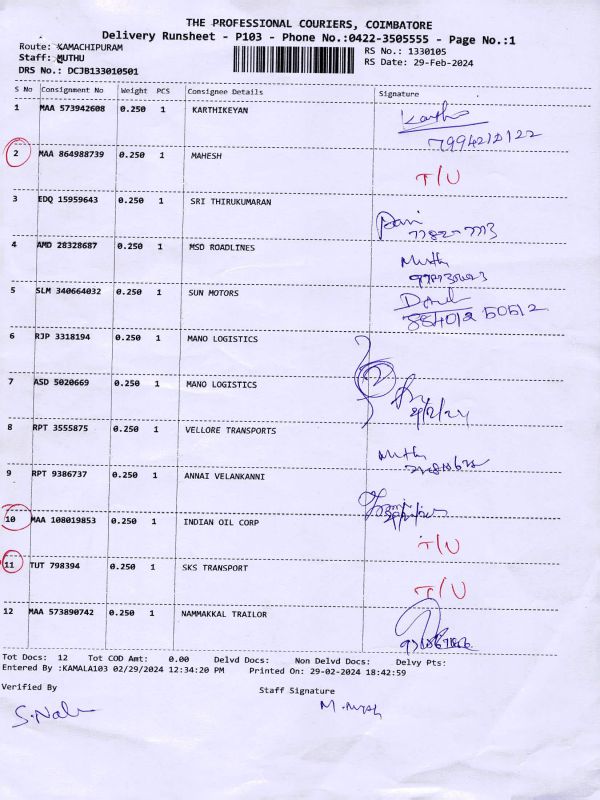 THE PROFESSIONAL COURIERS, COIMBATORE
Delivery Runsheet - P103 - Phone No.:0422-3505555 - Page No.:1
Route: KAMACHIPURAM RS No.: 1330105
Staff: MUTHU RS Date: 29-Feb-2024
DRS No.: DCJB133010501
S No Consignment No Weight PCS Consignee Details Signature
1 MAA 573942608 0.250 1 KARTHIKEYAN
2 MAA 864988739 0.250 1 MAHESH T/U
3 EDQ 15959643 0.250 1 SRI THIRUKUMARAN
4 AMD 28328687 0.250 1 MSD ROADLINES
5 SLM 340664032 0.250 1 SUN MOTORS
6 RJP 3318194 0.250 1 MANO LOGISTICS
7 ASD 5020669 0.250 1 MANO LOGISTICS
8 RPT 3555875 0.250 1 VELLORE TRANSPORTS
9 RPT 9386737 0.250 1 ANNAI VELANKANNI
10 MAA 108019853 0.250 1 INDIAN OIL CORP T/U
11 TUT 798394 0.250 1 SKS TRANSPORT T/U
12 MAA 573890742 0.250 1 NAMMAKKAL TRAILOR
Tot Docs: 12 Tot COD Amt: 0.00 Delvd Docs: Non Delvd Docs: Delvy Pts:
Entered By :KAMALA103 02/29/2024 12:34:20 PM Printed On: 29-02-2024 18:42:59
Verified By Staff Signature